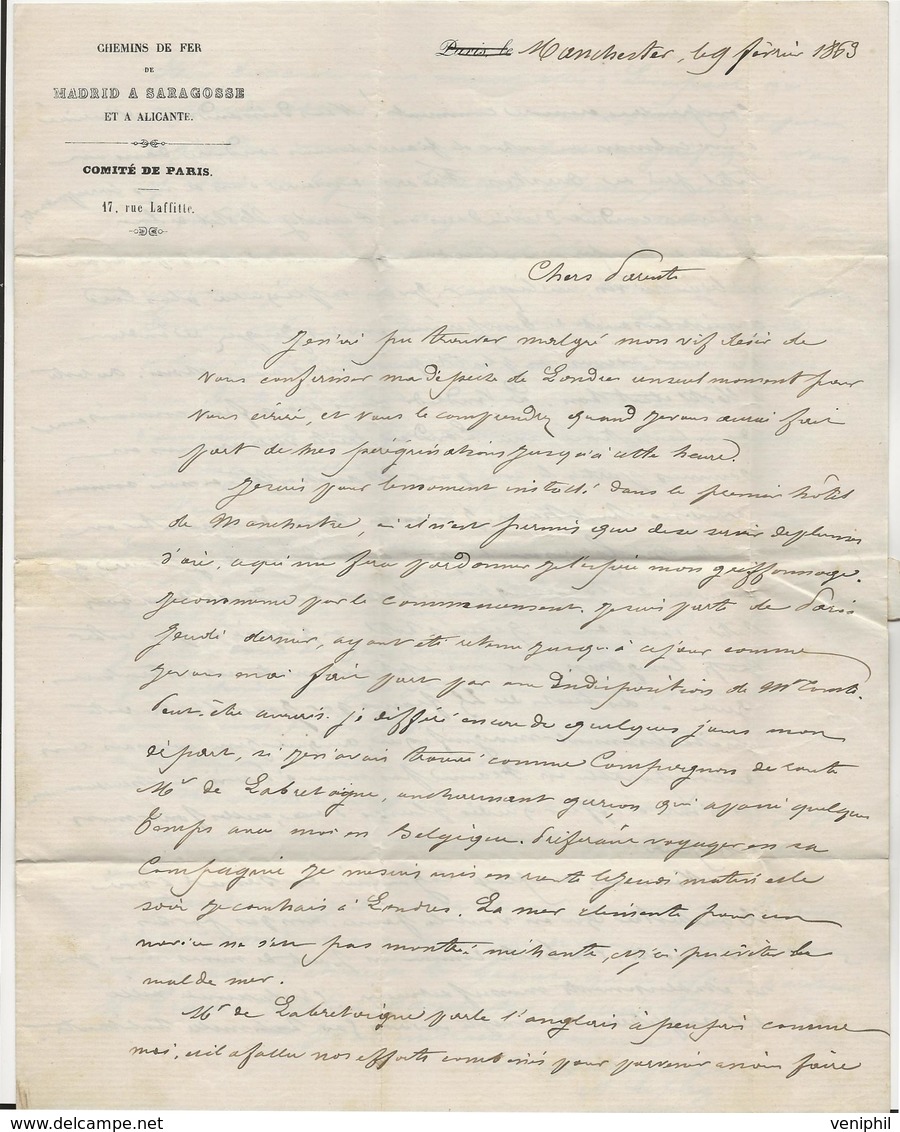 CHEMINS DE FER
DE
MADRID A SARAGOSSE
ET A ALICANTE.
COMITÉ DE PARIS.
17, rue Laffitte.
Paris, le Manchester, le 9 février 1863
Chers Parents
Je n'ai pu trouver malgré mon vif désir de
vous confirmer ma dépêche de Londres un seul moment pour
vous écrire, et vous le comprendrez quand je vous aurai fait
part de mes pérégrinations jusqu'à cette heure.
Je suis pour le moment installé dans le premier hôtel
de Manchester, où il n'est permis que de se servir de plumes
d'oie, ce qui me fera pardonner je l'espère mon griffonnage.
Je commence par le commencement. Je suis parti de Paris
Jeudi dernier, ayant été retenu jusqu'à ce jour comme
je vous en ai fait part par une indisposition de Mr
Peut-être aurais-je différé encore de quelques jours mon
départ, si je n'avais trouvé comme Compagnon de route
Mr de Labretoigne, un charmant garçon qui a passé quelque
temps avec moi en Belgique. Préférant voyager en sa
Compagnie je me suis mis en route le jeudi matin et le
soir je couchais à Londres. La mer clémente pour un
novice ne s'est pas montrée méchante, et j'ai pu éviter le
mal de mer.
Mr de Labretoigne parle l'anglais à peu près comme
moi, et il a fallu nos efforts combinés pour parvenir à nous faire
veniphil